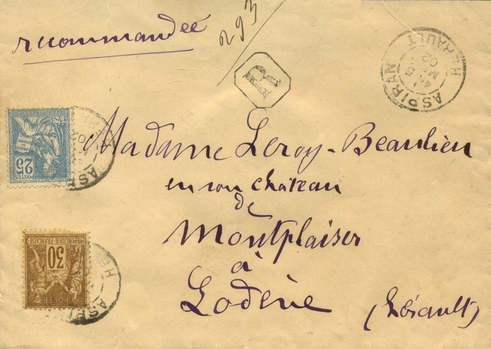 recommandée
293
R
ASPIRAN
HERAULT
02
25
POSTES
Madame Leroy-Beaulieu
en son château
de
Montplaisir
à
Lodève (Hérault)
30
POSTES